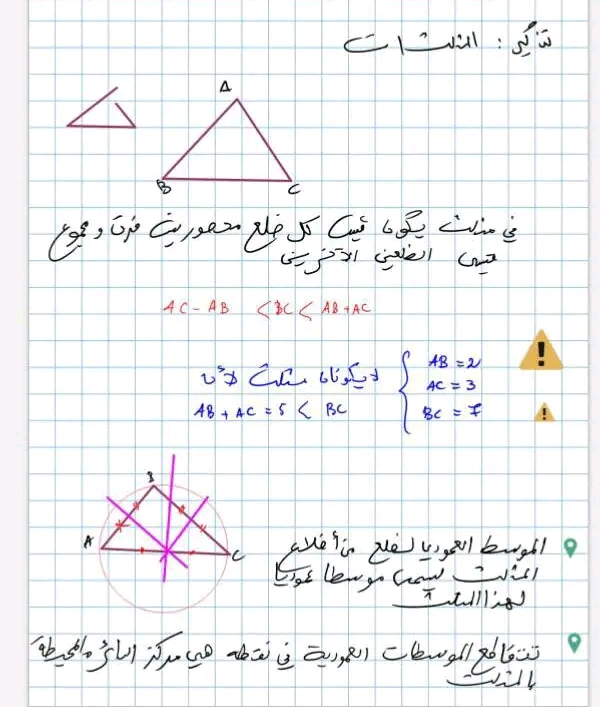 تذكير : المثلثات
A
B
C
في مثلث يكون قيس كل ضلع محصور بين فرق و مجموع
قيس الضلعين الآخرين
AC - AB < BC < AB + AC
AB = 2
AC = 3
BC = 7
لا يكونان مثلث لأن
AB + AC = 5 < BC
B
A
C
الموسط العمودي لضلع من أضلاع
المثلث يسمى موسطا عموديا
لهذا المثلث
تتقاطع الموسطات العمودية في نقطة هي مركز الدائرة المحيطة
بالمثلث